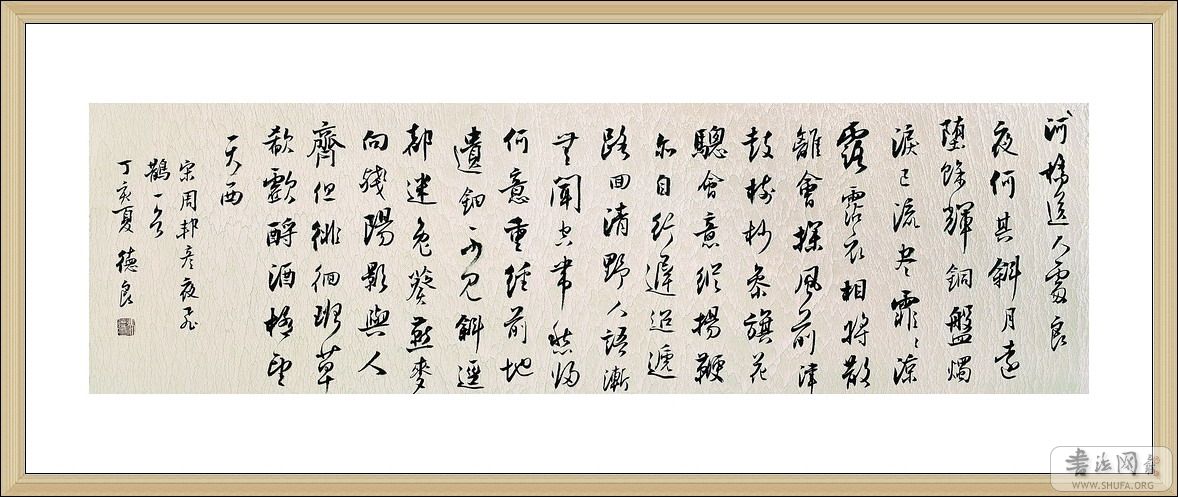 河橋送人處良
夜何其斜月遠
墮餘輝銅盤燭
淚已流尽霏〻涼
露霑衣相將散
離會探風前津
鼓樹杪參旗花
驄會意縱揚鞭
亦自行遲迢遞
路回清野人語漸
無聞空帶愁歸
何意重經前地
遺鈿不見斜逕
都迷兔葵燕麥
向殘陽影與人
齊但徘徊班草
欷歔酹酒極望
天西
宋周邦彥夜飛
鵲一首
丁亥夏 德良
书法网
WWW.SHUFA.ORG